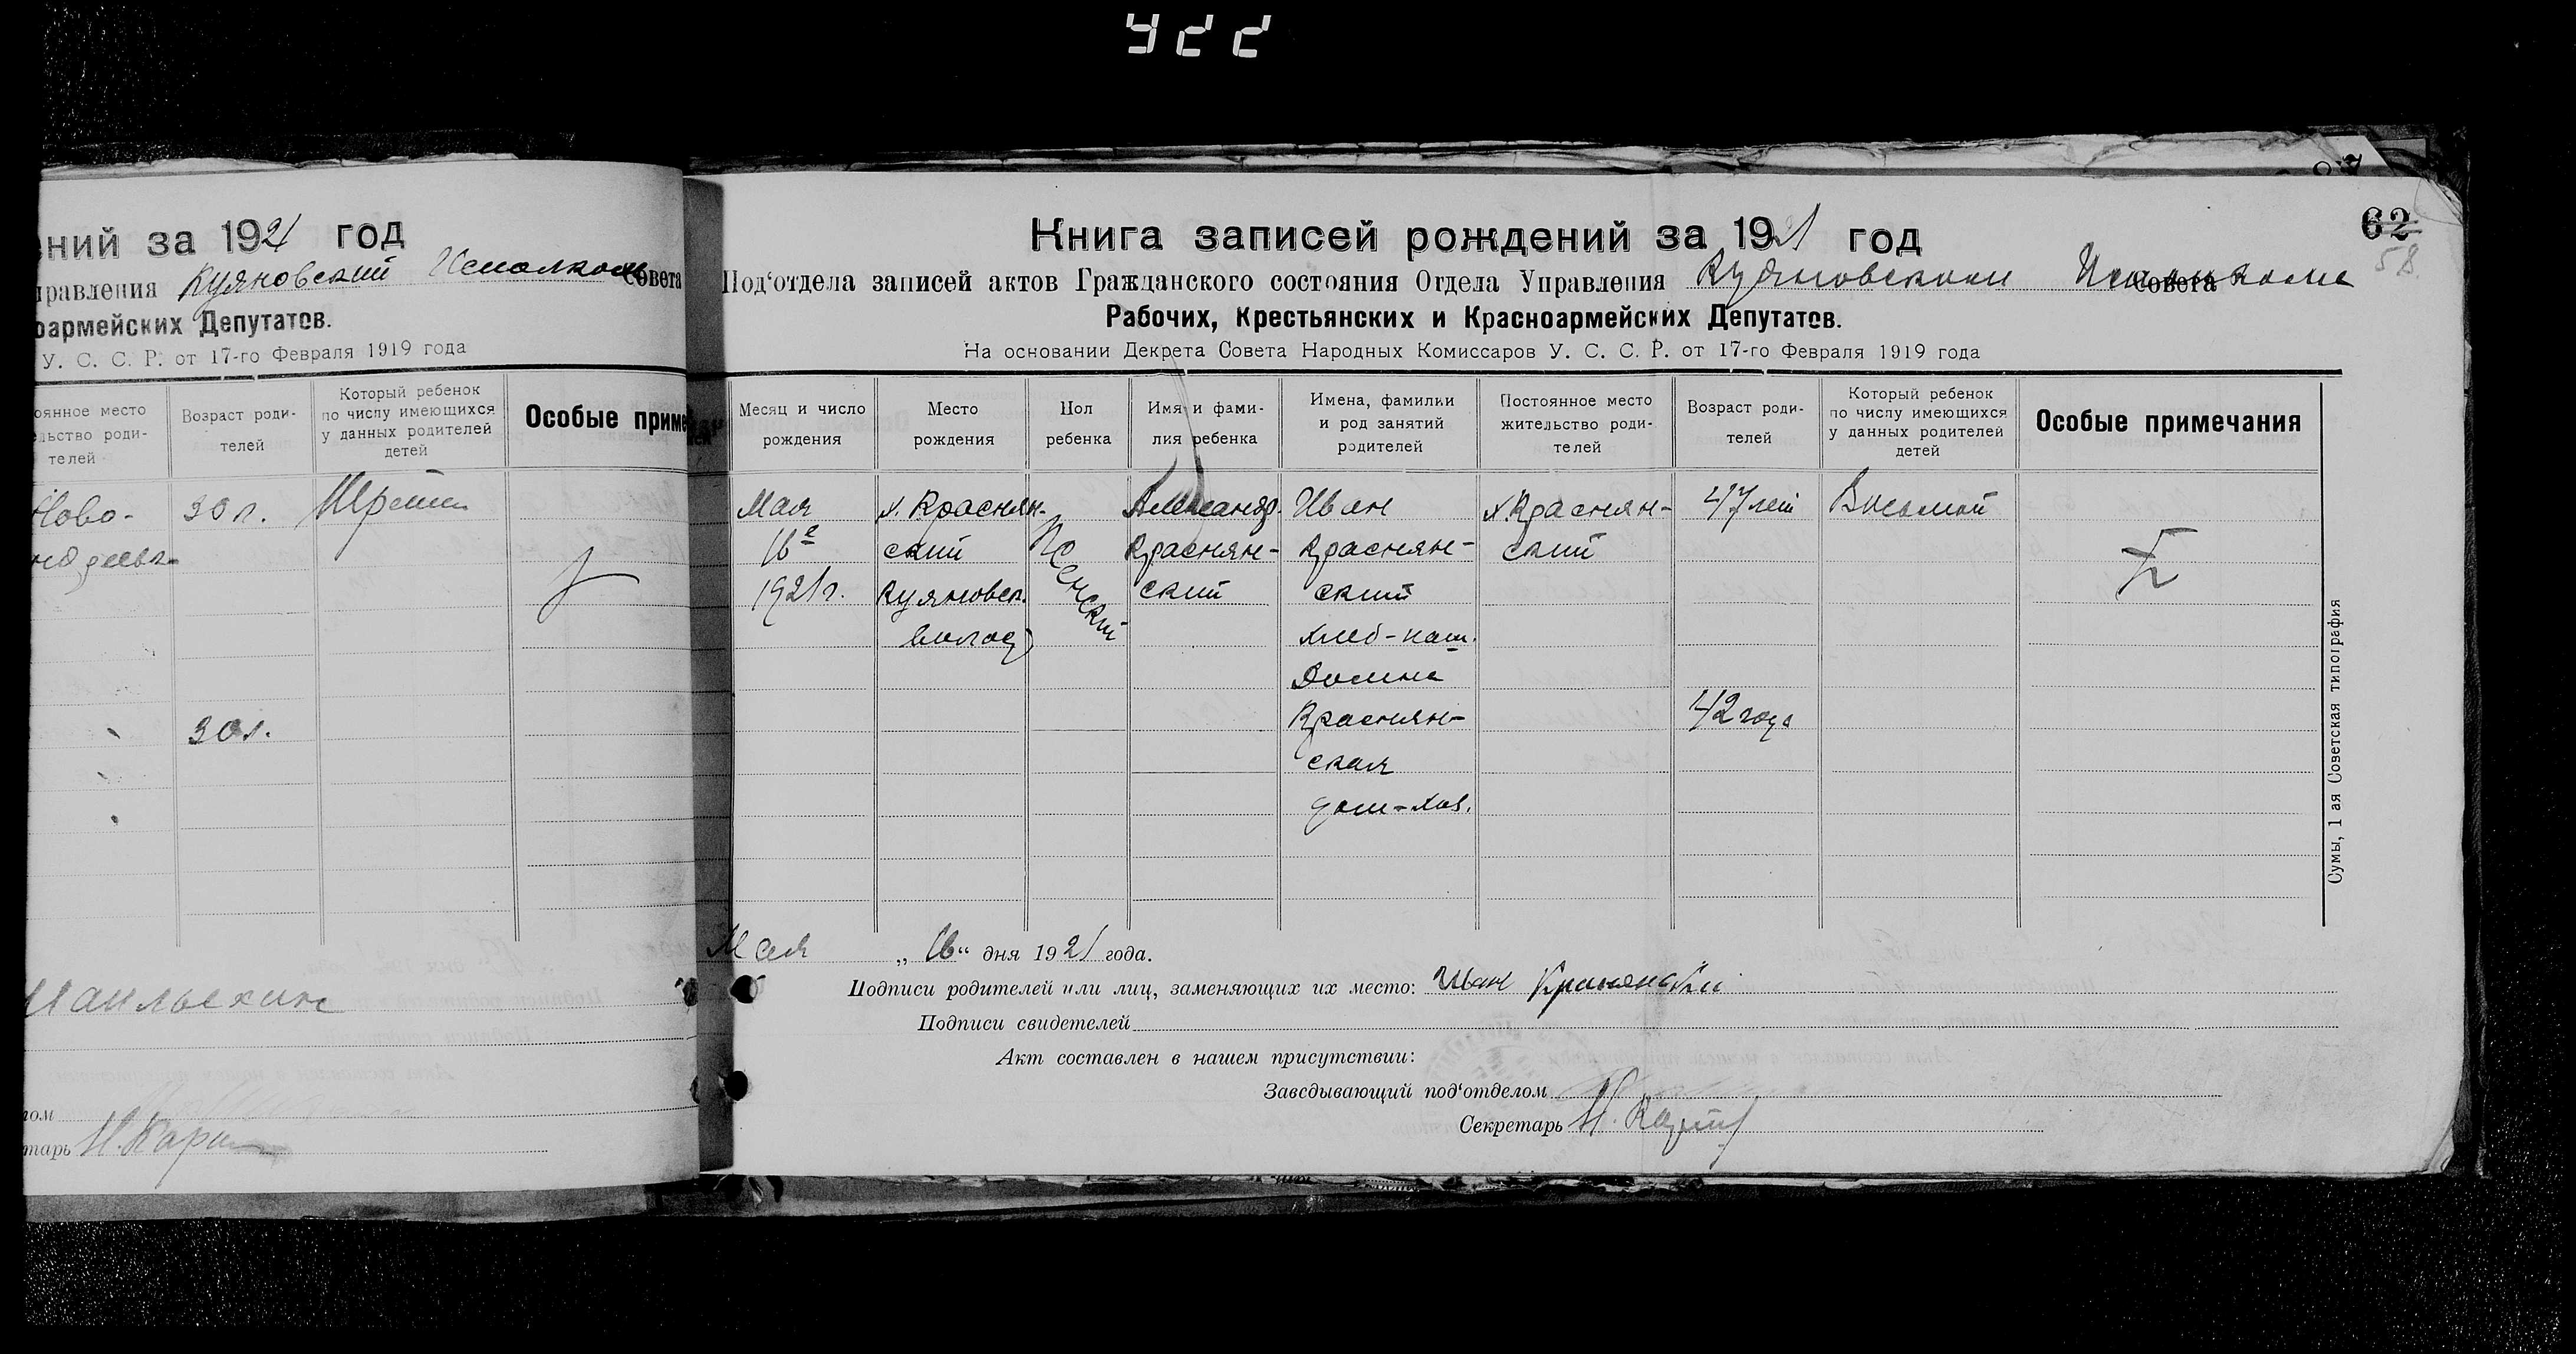 422
ений за 1921 год
правления Куяновский Исполком Совета
оармейских Депутатов.
У. С. С. Р. от 17-го Февраля 1919 года
оянное место
льство роди-
телей
Возраст роди-
телей
Который ребенок
по числу имеющихся
у данных родителей
детей
Особые приме
Ново-
30 л.
30 л.
лом
тарь Н.
62
58
Книга записей рождений за 1921 год
Под‘отдела записей актов Гражданского состояния Отдела Управления Куяновском Исполкоме Совета
Рабочих, Крестьянских и Красноармейских Депутатов.
На основании Декрета Совета Народных Комиссаров У. С. С. Р. от 17-го Февраля 1919 года
Месяц и число
рождения
Место
рождения
Пол
ребенка
Имя и фами-
лия ребенка
Имена, фамилии
и род занятий
родителей
Постоянное место
жительство роди-
телей
Возраст роди-
телей
Который ребенок
по числу имеющихся
у данных родителей
детей
Особые примечания
Мая
16е
1921 г.
х. Краснян-
ский
Куяновск.
волос
Александр.
Краснян-
ский
Иван
Краснян-
ский
хлеб-паш.
Домна
Краснян-
ская
дом-хоз.
х. Краснян-
ский
47 лет
42 года
Восьмой
Мая „ 16 “ дня 1921 года.
Подписи родителей или лиц, заменяющих их место: Иван Краснянский
Подписи свидетелей
Акт составлен в нашем присутствии:
Заведывающий под‘отделом
Секретарь Н.
Сумы, 1 ая Советская типография